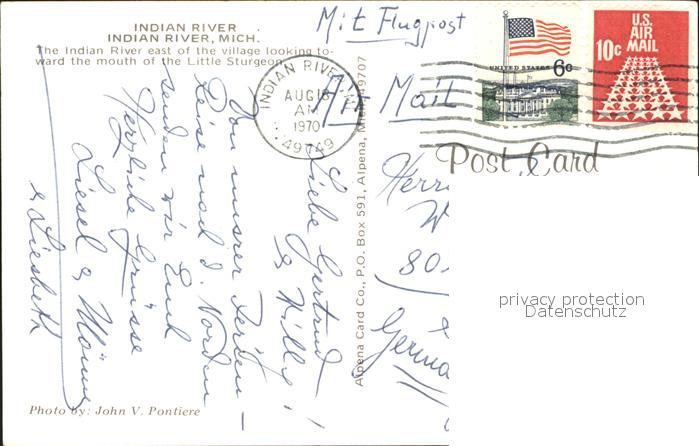 INDIAN RIVER
INDIAN RIVER, MICH.
The Indian River east of the village looking to-
ward the mouth of the Little Sturgeon
Mit Flugpost
Air Mail
INDIAN RIVER,
AUG 18
AM
1970
49749
UNITED STATES 6c
U.S.
AIR
MAIL
10c
Post Card
Liebe Gertrud
& Willi!
Von unserer Ferien-
Reise nach d. Norden
senden wir Euch
Herzliche Grüsse
Liesel &
& Liesbeth
Alpena Card Co., P.O. Box 591, Alpena, Mich. 49707
Herr
W
80
Germa
privacy protection
Datenschutz
Photo by: John V. Pontiere